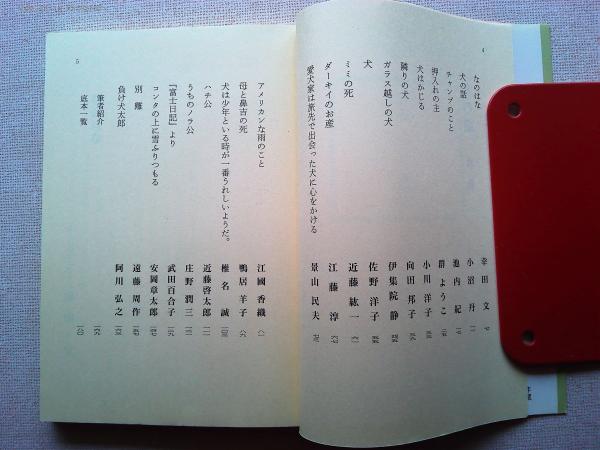 4
なのはな 幸田文
犬の話 小沼丹
チャンプのこと 池内紀
押入れの主 群ようこ
犬はかじる 小川洋子
隣りの犬 向田邦子
ガラス越しの犬 伊集院静
犬 佐野洋子
ミミの死 近藤紘一
ダーキイのお産 江藤淳
愛犬家は旅先で出会った犬に心をかける 景山民夫
5
アメリカンな雨のこと 江國香織
母と鼻吉の死 鴨居羊子
犬は少年といる時が一番うれしいようだ。 椎名誠
ハチ公 近藤啓太郎
うちのノラ公 庄野潤三
『富士日記』より 武田百合子
コンタの上に雪ふりつもる 安岡章太郎
別離 遠藤周作
負け犬太郎 阿川弘之
筆者紹介
底本一覧